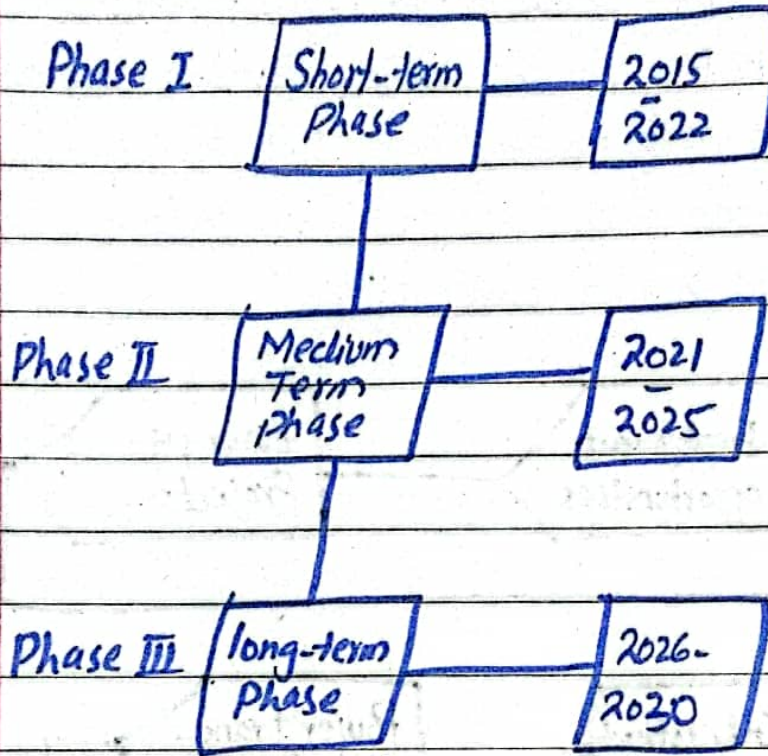 Phase I
Short-term
Phase
2015
-
2022
Phase II
Medium
Term
phase
2021
-
2025
Phase III
long-term
Phase
2026-
2030